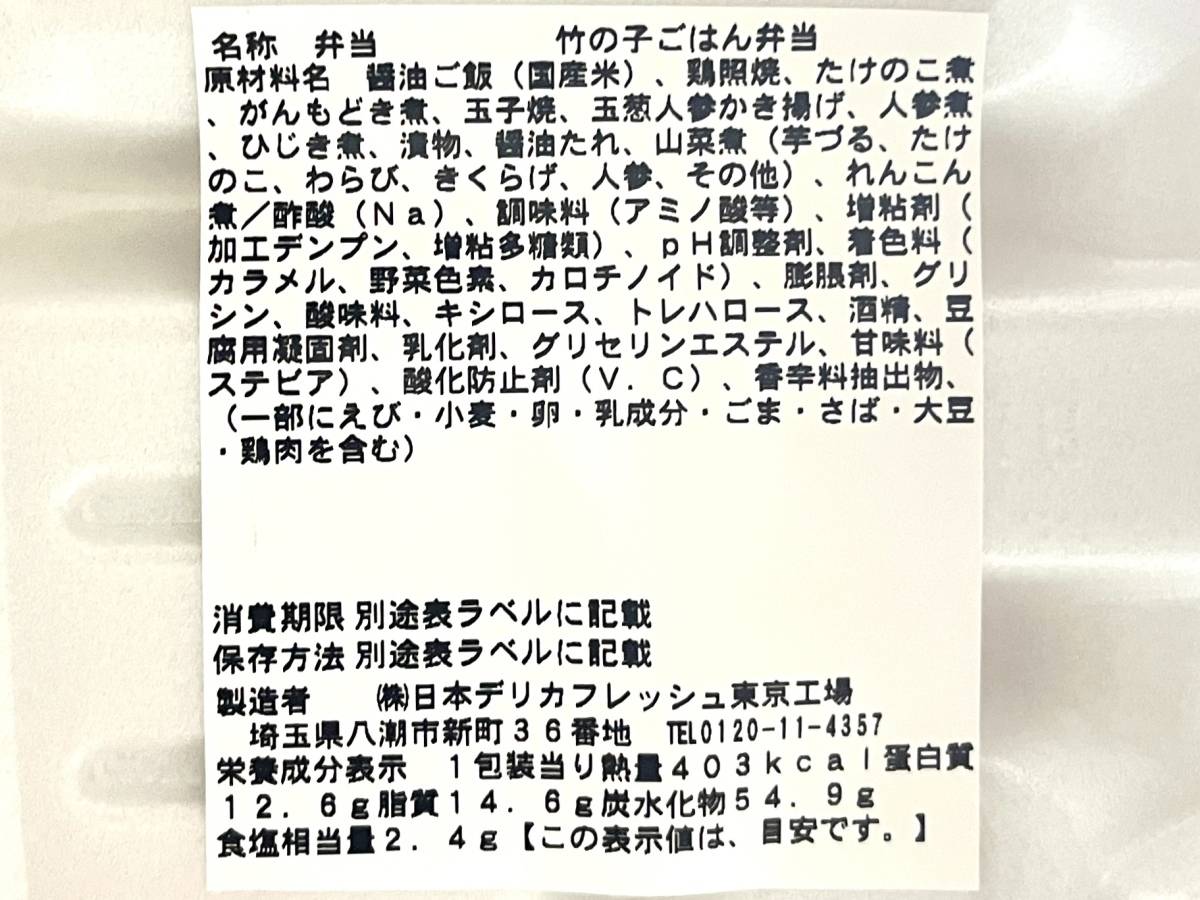 名称　弁当　　　　　竹の子ごはん弁当
原材料名　醤油ご飯（国産米）、鶏照焼、たけのこ煮
、がんもどき煮、玉子焼、玉葱人参かき揚げ、人参煮
、ひじき煮、漬物、醤油たれ、山菜煮（芋づる、たけ
のこ、わらび、きくらげ、人参、その他）、れんこん
煮／酢酸（Ｎａ）、調味料（アミノ酸等）、増粘剤（
加工デンプン、増粘多糖類）、ｐＨ調整剤、着色料（
カラメル、野菜色素、カロチノイド）、膨脹剤、グリ
シン、酸味料、キシロース、トレハロース、酒精、豆
腐用凝固剤、乳化剤、グリセリンエステル、甘味料（
ステビア）、酸化防止剤（Ｖ．Ｃ）、香辛料抽出物、
（一部にえび・小麦・卵・乳成分・ごま・さば・大豆
・鶏肉を含む）
消費期限 別途表ラベルに記載
保存方法 別途表ラベルに記載
製造者　　㈱日本デリカフレッシュ東京工場
埼玉県八潮市新町３６番地　TEL0120-11-4357
栄養成分表示　１包装当り熱量４０３ｋｃａｌ蛋白質
１２．６ｇ脂質１４．６ｇ炭水化物５４．９ｇ
食塩相当量２．４ｇ【この表示値は、目安です。】